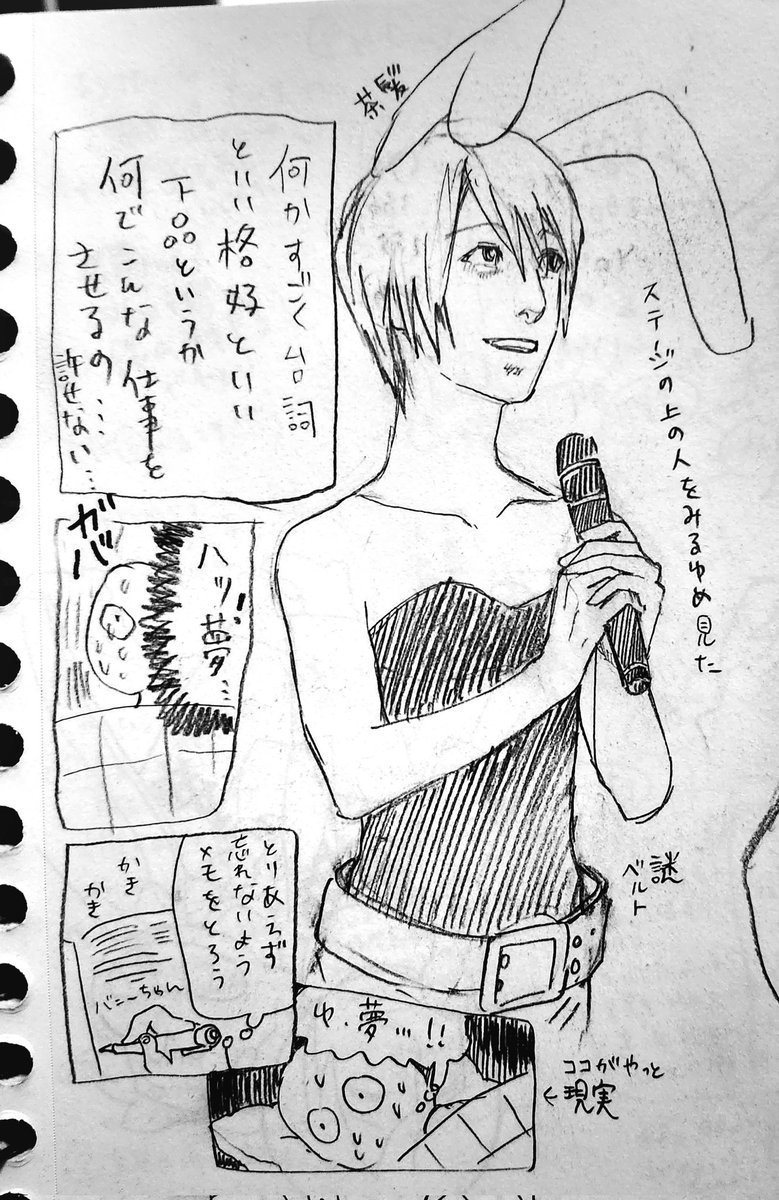 茶髪
何かすごく台詞
といい格好といい
下品というか
何でこんな仕事を
させるの…
許せない…
ステージの上の人をみるゆめ見た
ガバ
ハッ!
夢…
謎
ベルト
とりあえず
忘れないよう
メモをとろう
かき
かき
バニーちゃん
ゆ、夢…!!
ココがやっと
←現実